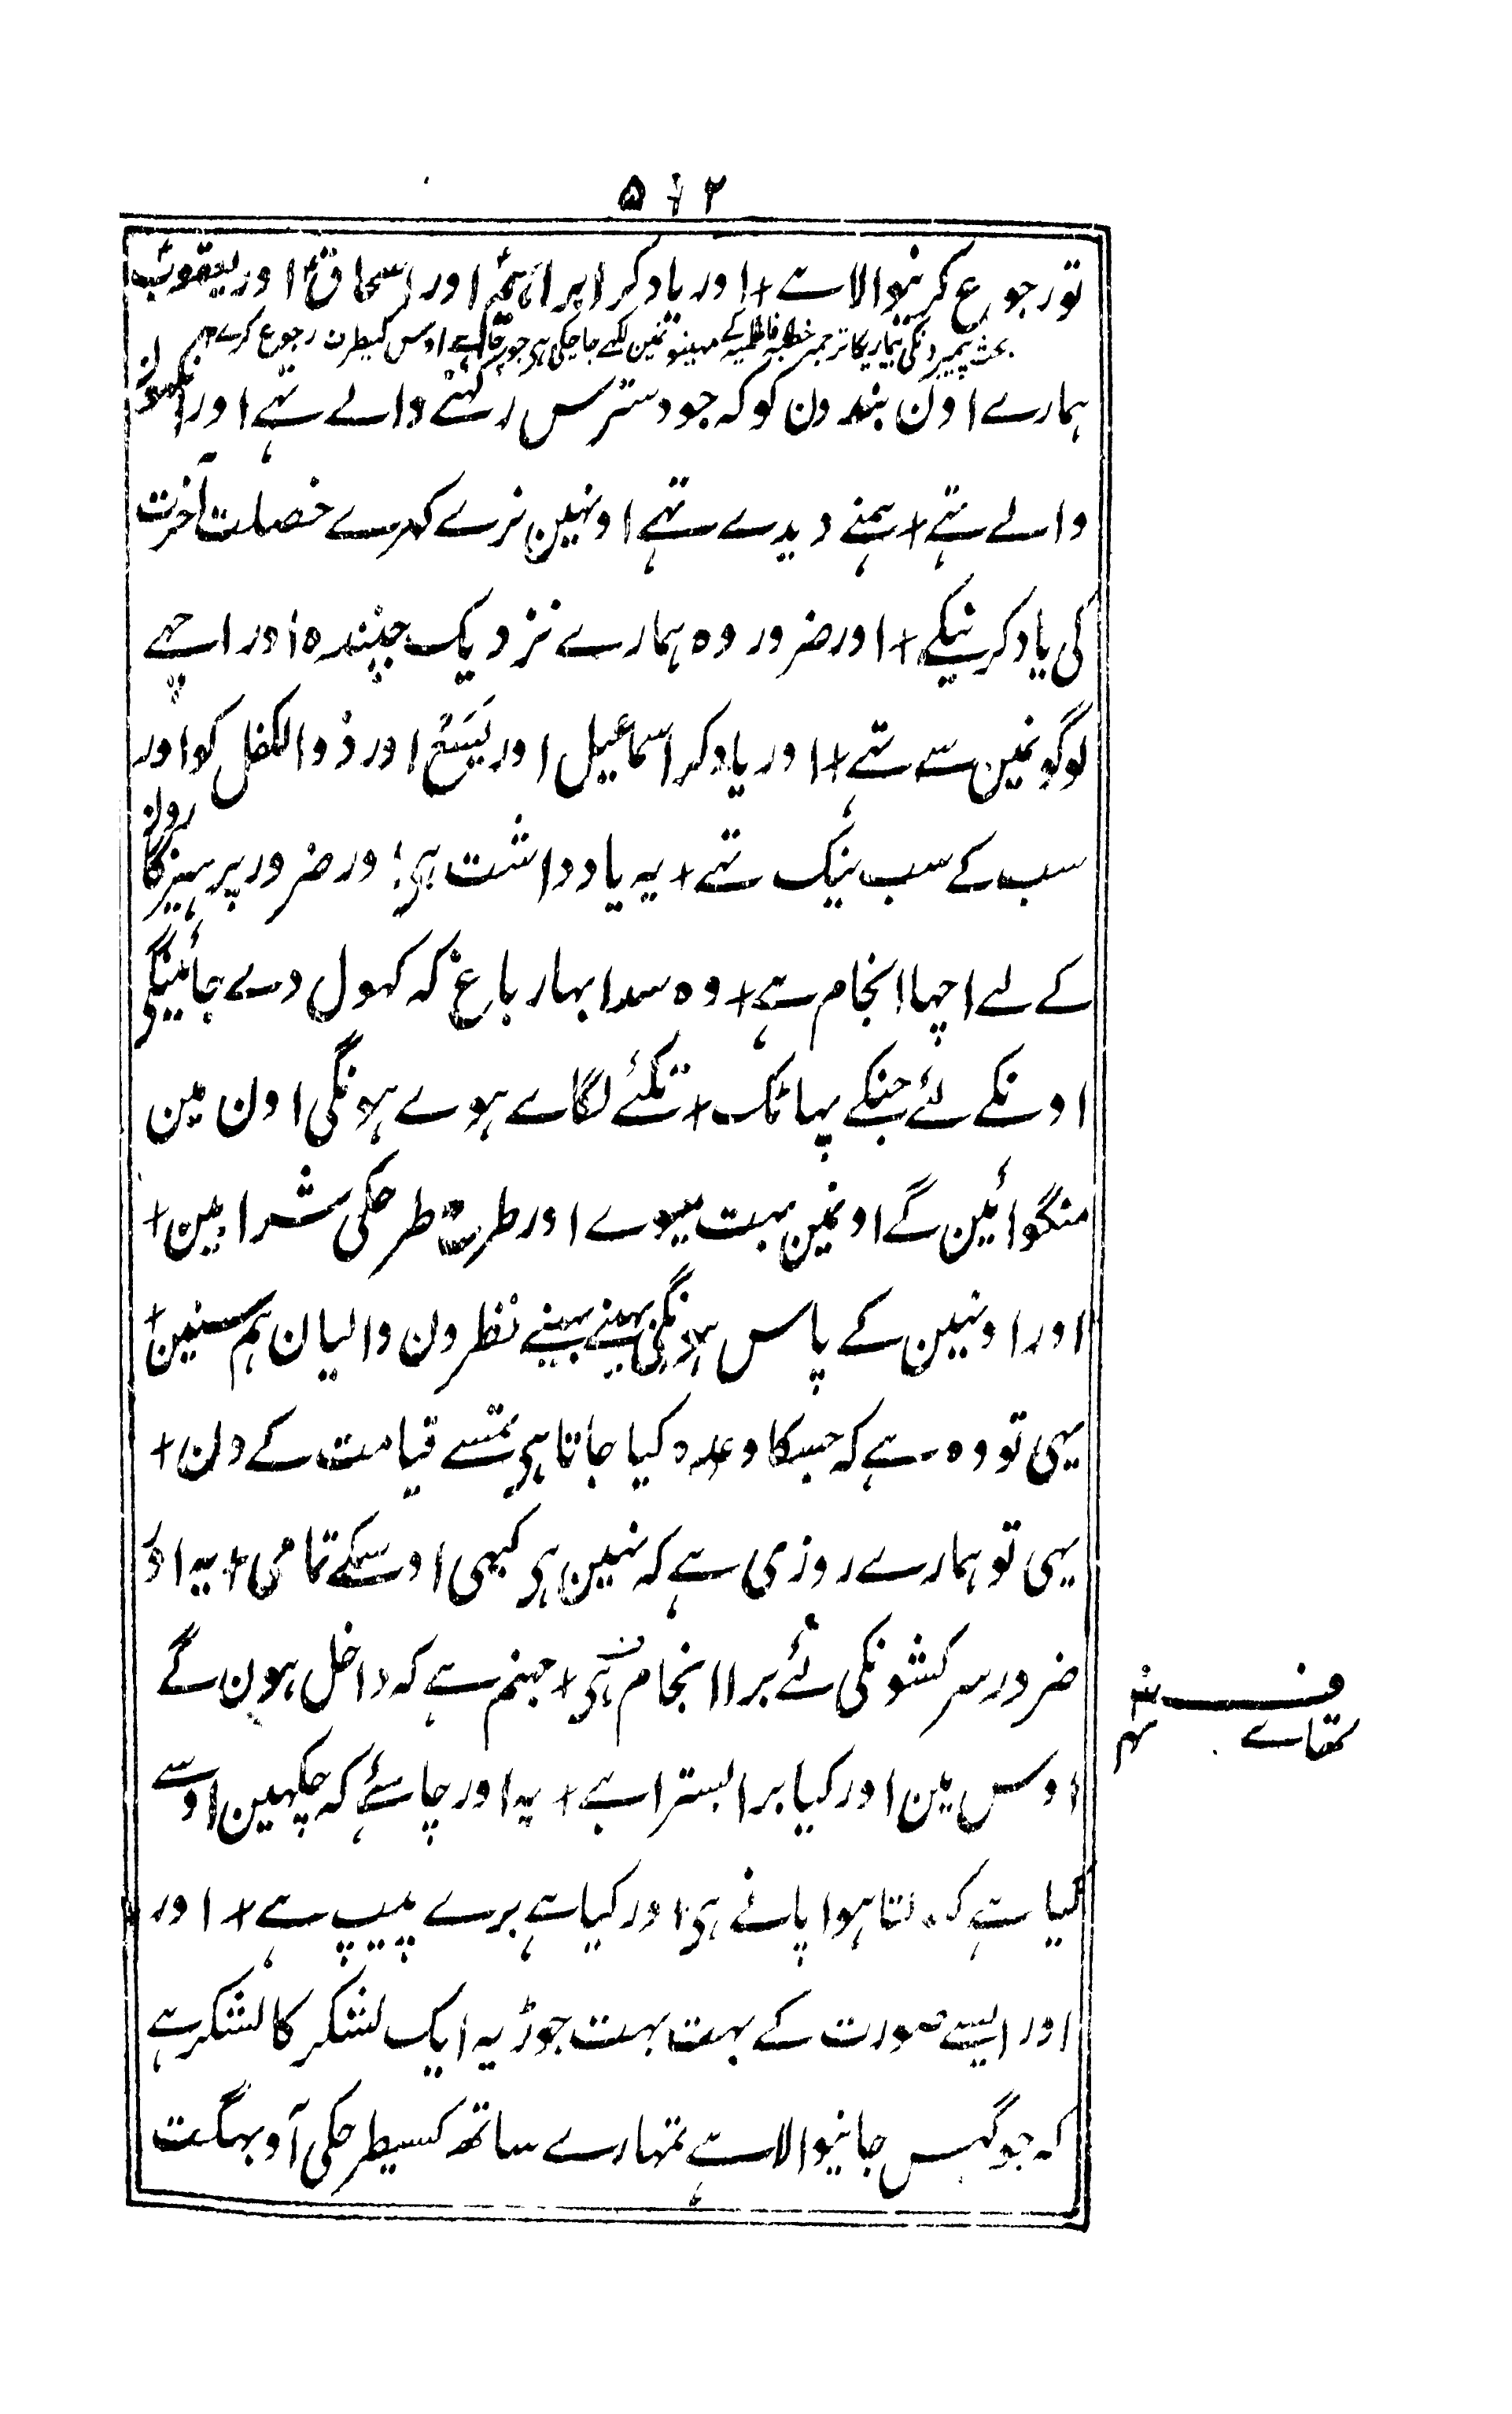 ۵۶۲
تو رجوع کرنیوالا ہے + اور یاد کر ابراہیمؑ اور اسحاقؑ اور یعقوبؑ
بحث پیمبرونکی بیماریکا ترجمہ خطبہ فاطمیہ کے مہینو نمین لکھے جا چکی ہی جو چاہے اوس کیطرف رجوع کرے
ہمارے اون بندون کو کہ جو دسترس رکہنے والے تہے اور انکہون
والے تہے + ہمنے دیدے تہے اونہین نرے کہرے خصلت آخرت
کی یاد کرنیکے + اور ضرور وہ ہمارے نزدیک چنندہ اور اچہے
لوگونمین سے تہے + اور یاد کر اسماعیل اور یَسَعْ اور ذوالکفل کو اور
سب کے سب نیک تہے + یہ یادداشت ہی اور ضرور پرہیزگارون
کے لے اچہا انجام ہے + وہ سدا بہار باغ کہ کہول دے جائینگی
اونکے لئے جنکے پہاٹک + تکئے لگاے ہوے ہونگی اون مین
منگوائین گے اونمین بہت میوے اور طرح طرحکی شرابین +
اور اونہین کے پاس ہونگی نیچے نیچے نظرون والیان ہم سنین +
یہی تو وہ ہے کہ جسکا وعدہ کیا جاتا ہی تمسے قیامت کے دن +
یہی تو ہمارے روزی ہے کہ نہین ہی کبہی اوسکے تمامی + یہ اور
ضرور سرکشونکی لئے برا انجام ہی + جہنم ہے کہ داخل ہون گے
اوس مین اور کیا برا بسترا ہے + یہ اور چاہئے کہ چکہین اوسے
کیا ہے کہولتا ہوا پانے ہی اور کیا ہے برے پیپ ہے + اور
اور ایسے صورت کے بہت بہت جوڑ یہ ایک لشکر کا لشکر ہے
کہ جو گہس جانیوالا ہے تمہارے ساتھ کسیطرحکی آو بہگت